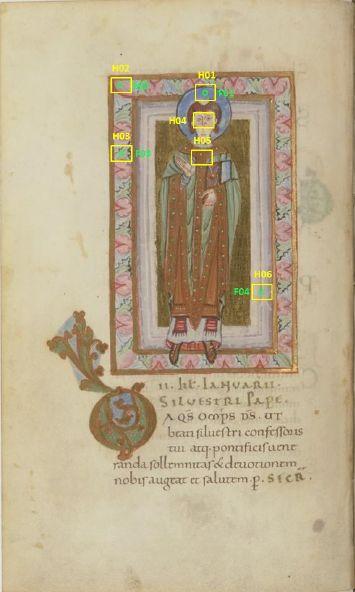 H02
H01
F01
H04
H03
F03
H05
H06
F04
II. kt. IANVARII.
SILVESTRI PAPE.
QS OMPS DS. UT
beati silvestri confessoris
tui atq. pontificis uene
randa sollemnitas & deuotionem
nobis augeat et salutem. p. SECR.